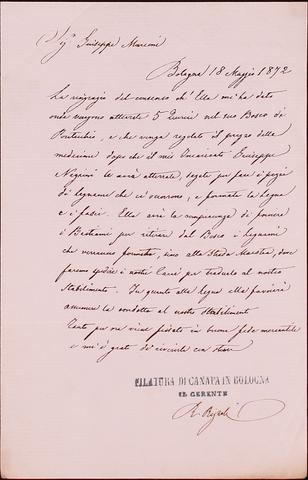 Sigr Giuseppe Marconi
Bologna 18 Maggio 1872
La ringrazio del consenso ch'Ella mi ha dato
onde vengono atterrate 5 Querci nel suo Bosco di
e che venga regolato il prezzo delle
medesime dopo che il mio Incaricato Giuseppe
Negrini le avrà atterrate, segate per fare i pezzi
di legname che ci occorrono, e formate la legna
e i fasci. Ella avrà la compiacenza di fornire
i Bestiami per ritirar dal Bosco i legnami
che verranno formati, sino alla Strada Maestra, dove
faremo spedire i nostri Carri per tradurlo al nostro
Stabilimento. In quanto alla legna ella favorirà
assumere la condotta al nostro Stabilimento
Tanto per ora viene fidato in buona fede mercantile
e mi è grato di riverirla con stima
FILATURA DI CANAPA IN BOLOGNA
IL GERENTE